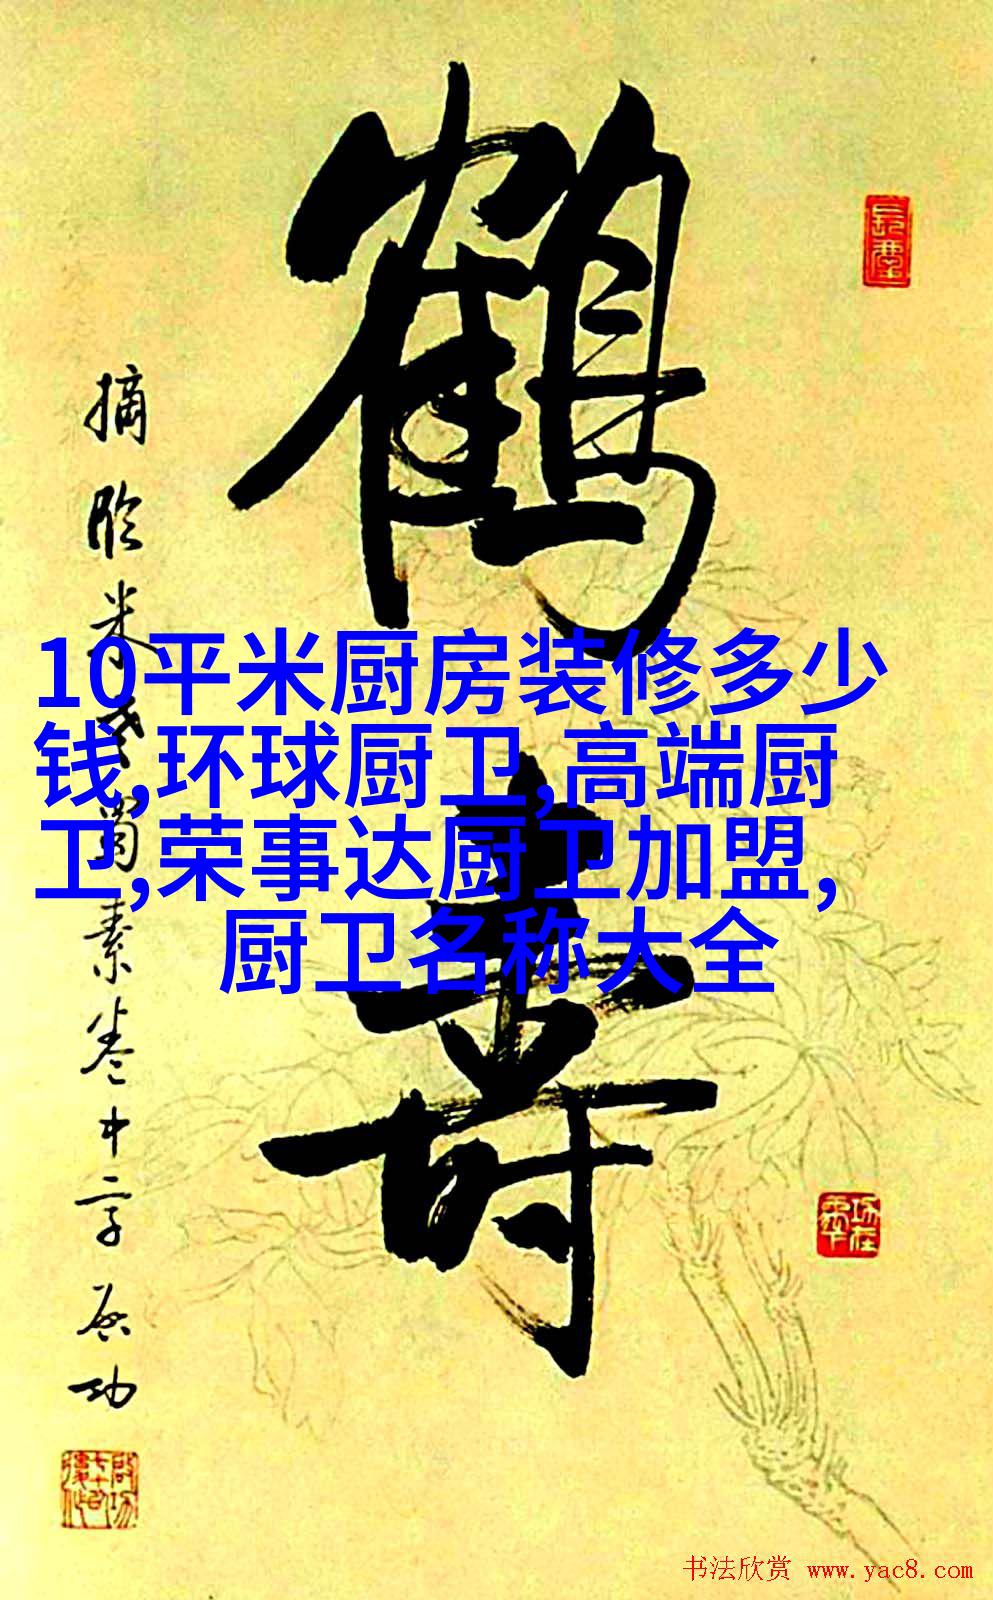 鹤
寿
摘临米书蜀素卷中字启功
10平米厨房装修多少
钱,环球厨卫,高端厨
卫,荣事达厨卫加盟,
厨卫名称大全
书法欣赏 www.yac8.com